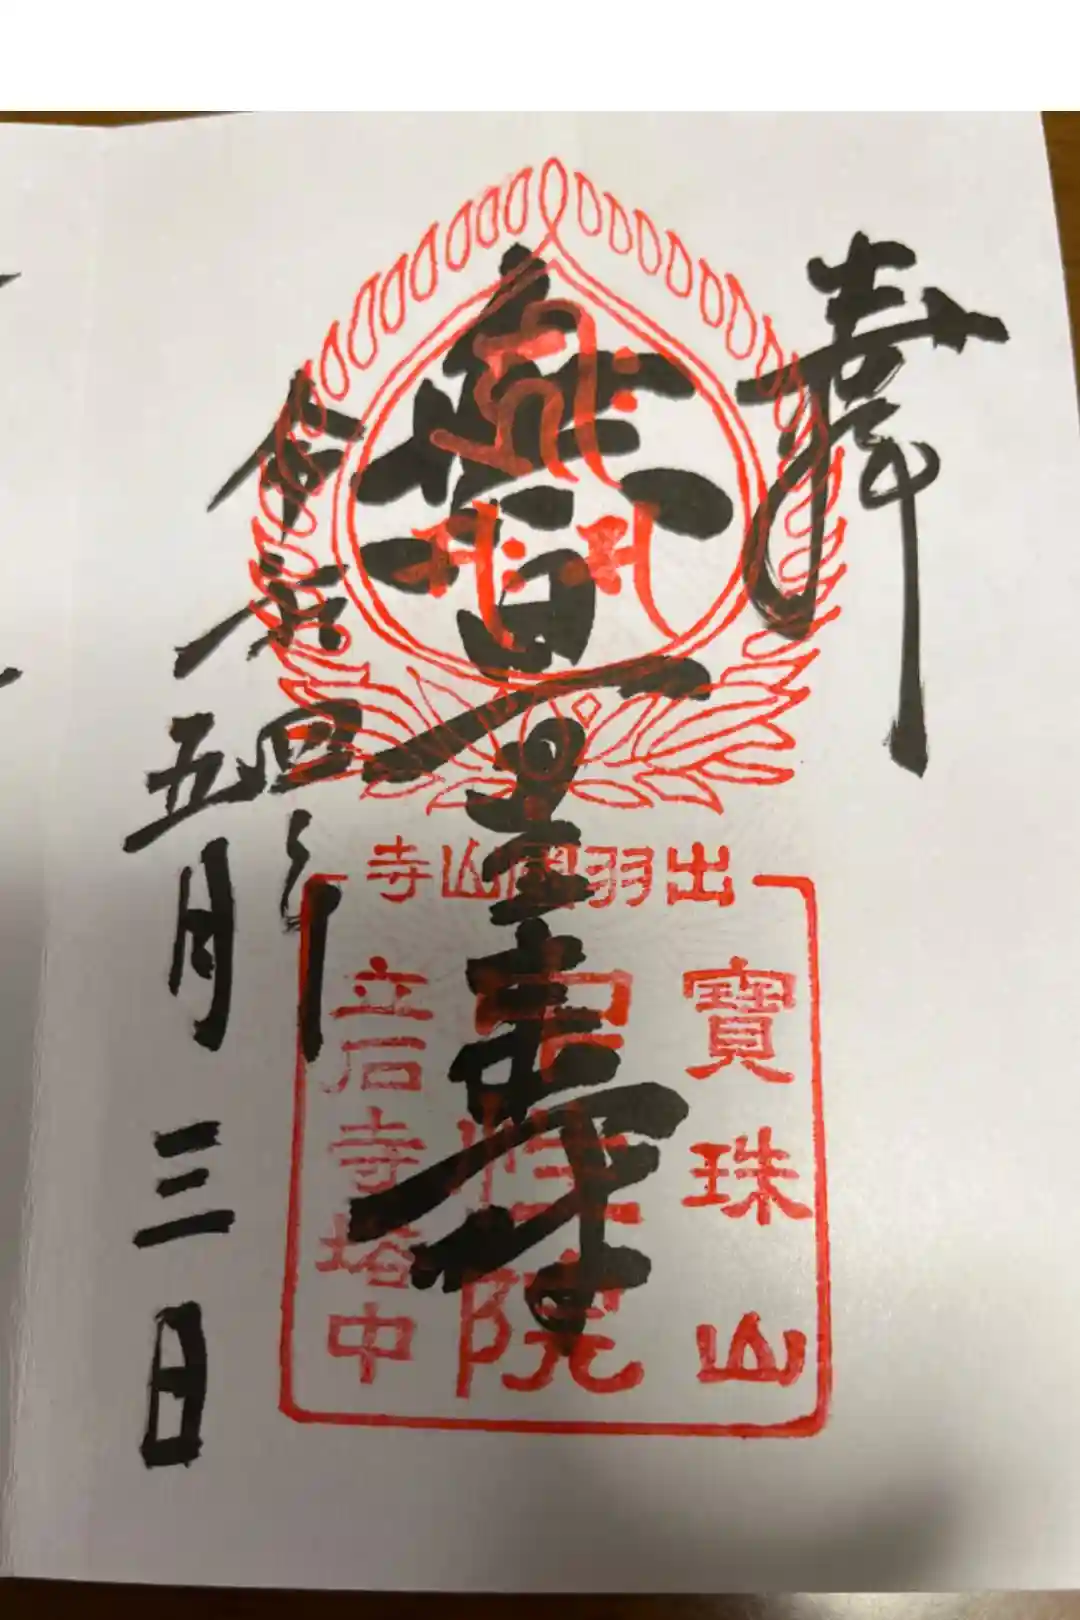 奉拝
無量壽
令和四年
五月三日
出羽國山寺
寶珠山
中性院
立石寺塔中